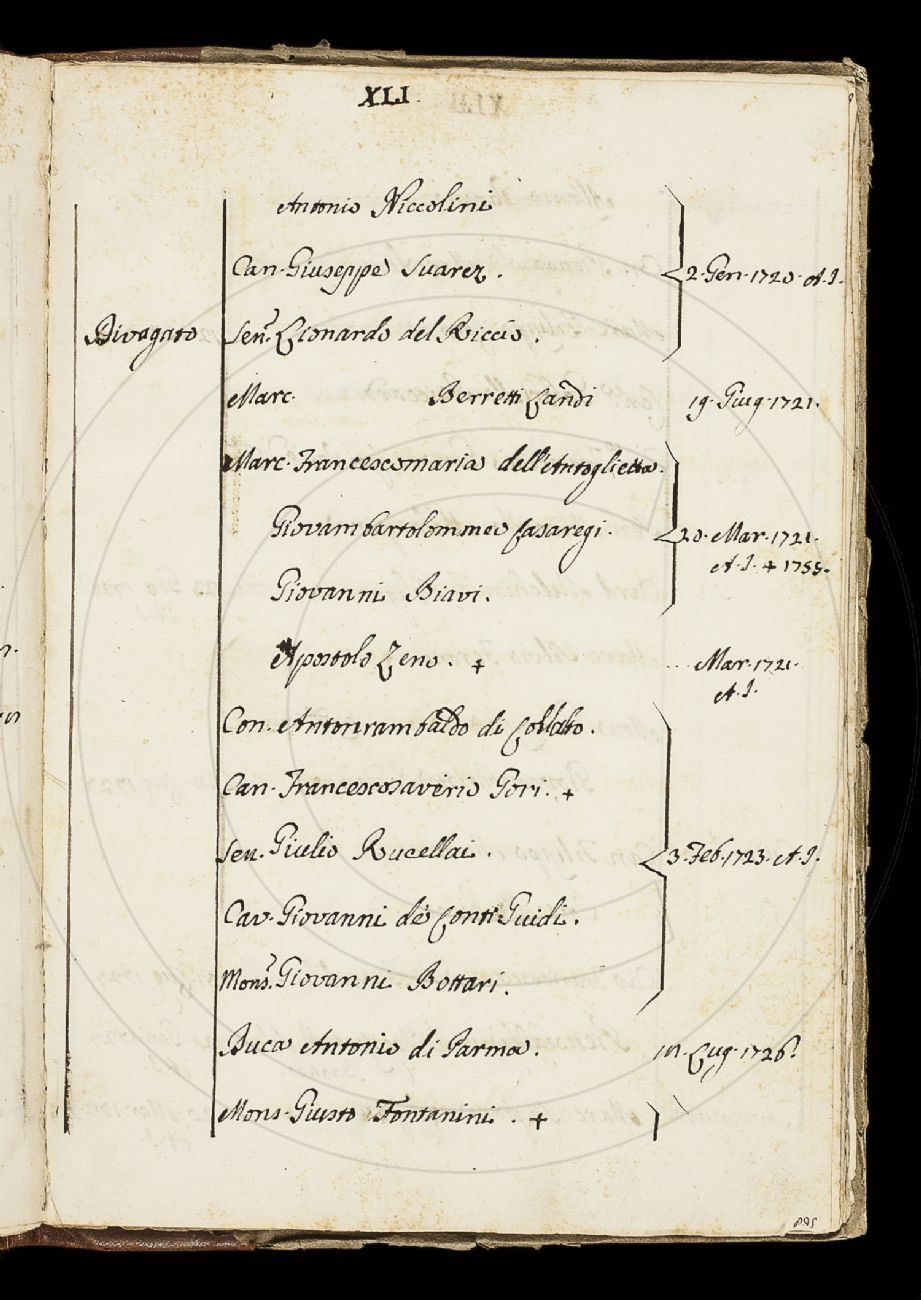 XLI
Antonio Niccolini
Can. Giuseppe Suarez.
2. Gen. 1720. A. I.
Divagato Sen.r Lionardo del Riccio.
Marc. Berretti Landi 19. Giug. 1721.
Marc. Francescomaria dell'Antoglietta.
Giovambartolommeo Casaregi.
20. Mar. 1721.
A. I. + 1755.
Giovanni Biavi.
Apostolo Zeno. + ... Mar. 1721.
A. I.
Con. Antonrambaldo di Collalto.
Can. Francescosaverio Gori. +
Sen. Giulio Rucellai. 3. Feb. 1723. A. I.
Cav. Giovanni de' Conti Guidi.
Mons.r Giovanni Bottari.
Duca Antonio di Parma. Lug. 1726.
Mons. Giusto Fontanini. +